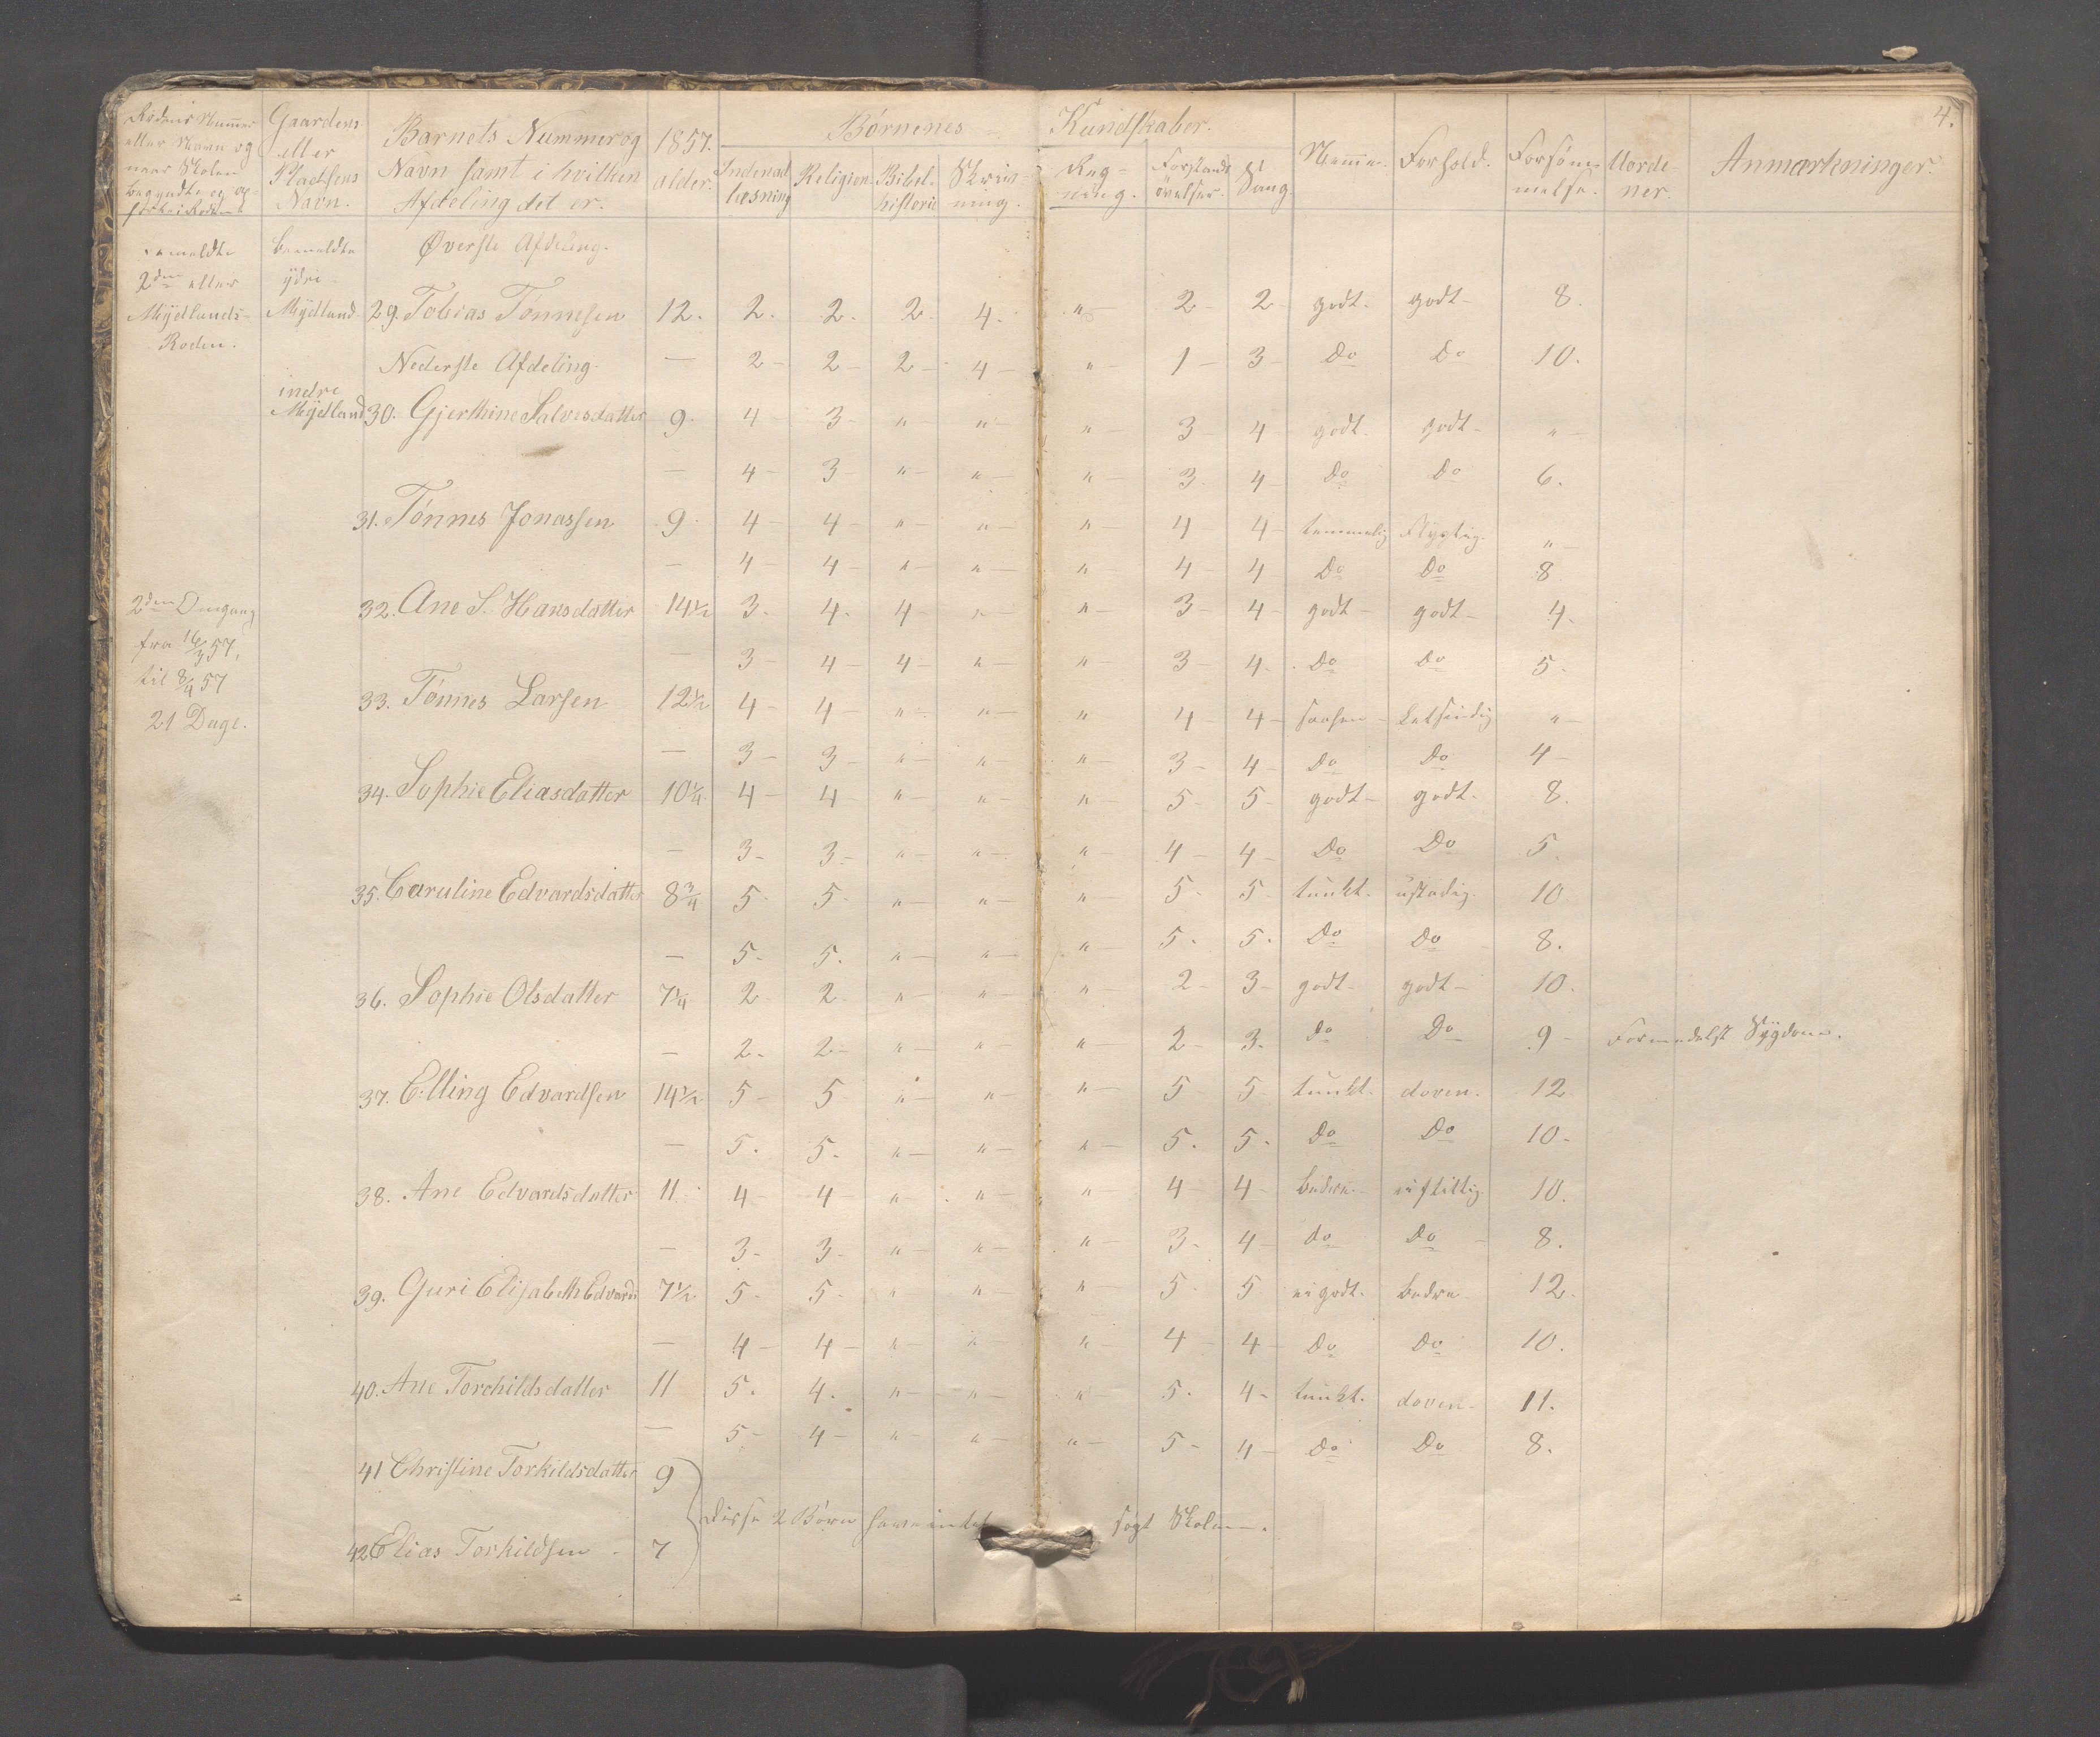 4.
Rodens Nummer eller Navn og naar Skolen begyndte og op-
Gaardens eller Pladsens Navn.
Barnets Nummer og Navn samt i hvilken Afdeling det er.
1857. alder.
Børnenes Kundskaber.
Indenad læsning Religion. Bibel-historie Skriv-ning. Reg-ning. Forstands øvelser. Sang.
Nemme. Forhold. Forsøm-melse. Uorde-ner. Anmærkninger.
bemeldte bemeldte Øverste Afdeling.
2den eller ydre
Mydlands- Mydland. 29. Tobias Tønnesen 12. 2. 2. 2. 4. " 2 2 godt. godt 8.
Roden.
Nederste Afdeling. — 2 2 2 4 " 1 3 Do Do 10.
indre
Mydland 30. Gjerthine Salvesdatter 9. 4 3 " " " 3 4 godt. godt "
— 4 3 " " " 3 4 Do Do 6.
31. Tønnes Jonassen 9. 4 4 " " " 4 4 temmelig Flygtig. "
— 4 4 " " " 4 4 Do Do 8
2den Omgang 32. Ane S. Hansdatter 14½ 3. 4. 4 " " 3 4 godt godt 4.
fra 16/3 57,
— 3 4 4 " " 3 4. Do Do 5.
til 8/4 57
33. Tønnes Larsen 12½ 4 4 " " " 4 4 saasen Letsindig "
21 Dage.
— 3 3 " " " 3 4 Do Do 4
34. Sophie Eliasdatter 10¼ 4 4 " " " 5 5 godt godt. 8.
— 3 3 " " " 4 4 Do Do 5.
35. Caruline Edvardsdatter 8¾ 5. 5. " " " 5 5 tungt. ustadig. 10
— 5. 5. " " " 5. 5. Do Do 8.
36. Sophie Olsdatter 7¼ 2 2 " " " 2 3 godt godt 10.
— 2. 2 " " " 2 3. do Do 9 Formedelst Sygdom.
37. Elling Edvardsen 14½ 5 5 " " " 5 5 tungt. doven. 12
— 5. 5. " " " 5. 5. Do Do 10.
38. Ane Edvardsdatter 11 4 4 " " " 4 4 bedre. ei flittig. 10.
— 3. 3 " " " 3. 4 do Do 8.
39. Guri Elisabeth Edvards 7½ 5. 5. " " " 5 5 ei godt. bedre 12.
— 4 4 " " " 4 4 Do Do 10.
40. Ane Torchildsdatter 11 5. 4. " " " 5. 4. tungt. doven. 11.
— 5 4 " " " 5 4 Do Do 8.
41 Christine Torkildsdatter 9
disse 2 Børn have intet søgt Skolen.
42 Elias Torkildsen 7